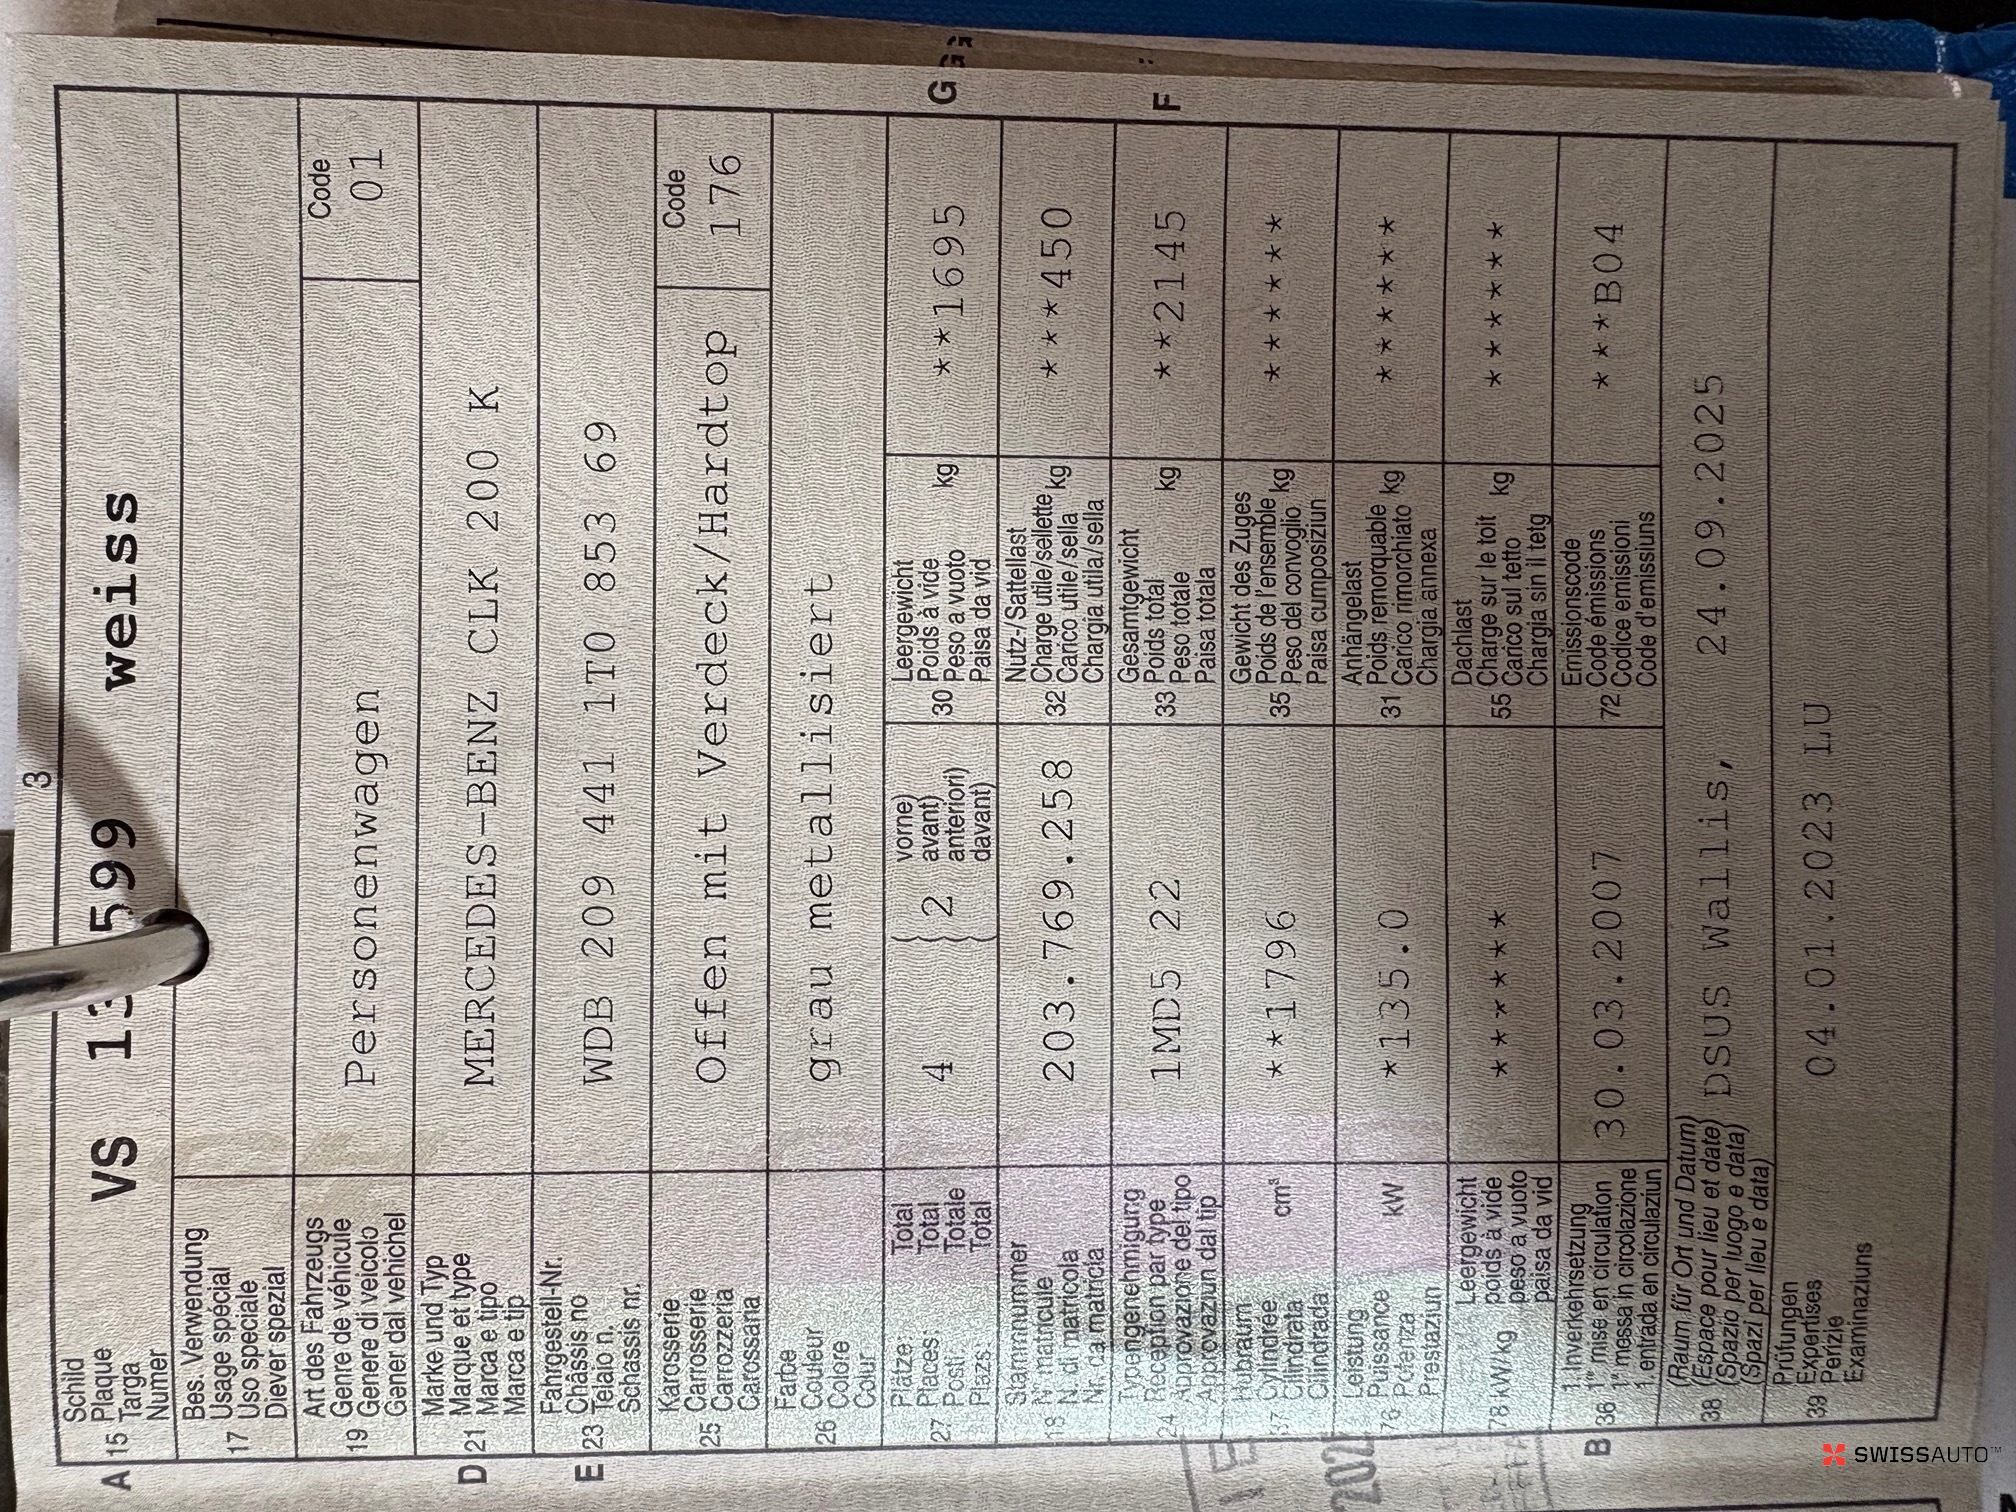 3
A 15 Schild
Plaque
Targa
Numer
VS 599 weiss
17 Bes. Verwendung
Usage special
Uso speciale
Diever spezial
19 Art des Fahrzeugs
Genre de véhicule
Genere di veicolo
Gener dal vehichel
Personenwagen
Code
01
D 21 Marke und Typ
Marque et type
Marca e tipo
Marca e tip
MERCEDES-BENZ CLK 200 K
E 23 Fahrgestell-Nr.
Châssis no
Telaio n.
Schassis nr.
WDB 209 441 1T0 853 69
25 Karosserie
Carosserie
Carrozzeria
Carossaria
Offen mit Verdeck/Hardtop
Code
176
26 Farbe
Couleur
Colore
Colur
grau metallisiert
27 Plätze: Total
Places: Total
Posti: Totale
Plazs: Total
4
2
vorne)
avant)
anteriori)
davant)
30 Leergewicht
Poids à vide
Peso a vuoto
Paisa da vid
kg
**1695
G
18 Stammnummer
N° matricule
N. di matricola
Nr. da matricla
203.769.258
32 Nutz-/Sattellast
Charge utile/sellette
Carico utile/sella
Chargia utila/sella
kg
***450
24 Typengenehmigung
Réception par type
Approvazione del tipo
Approvaziun dal tip
1MD5 22
33 Gesamtgewicht
Poids total
Peso totale
Paisa totala
kg
**2145
F
37 Hubraum
Cylindrée
Cilindrata
Cilindrada
cm³
**1796
35 Gewicht des Zuges
Poids de l'ensemble
Peso del convoglio
Paisa cumposiziun
kg
*******
76 Leistung
Puissance
Potenza
Prestaziun
kW
*135.0
31 Anhängelast
Poids remorquable
Carico rimorchiato
Chargia annexa
kg
*******
78 kW/kg
Leergewicht
poids à vide
peso a vuoto
paisa da vid
*******
55 Dachlast
Charge sur le toit
Carico sul tetto
Chargia sin il tetg
kg
*******
B 36 1. Inverkehrsetzung
1re mise en circulation
1a messa in circolazione
1. entrada en circulaziun
30.03.2007
72 Emissionscode
Code émissions
Codice emissioni
Code d'emissiuns
***B04
38 (Raum für Ort und Datum)
(Espace pour lieu et date)
(Spazio per luogo e data)
(Spazi per lieu e data)
DSUS Wallis, 24.09.2025
39 Prüfungen
Expertises
Perizie
Examinaziuns
04.01.2023 LU
SWISSAUTO™